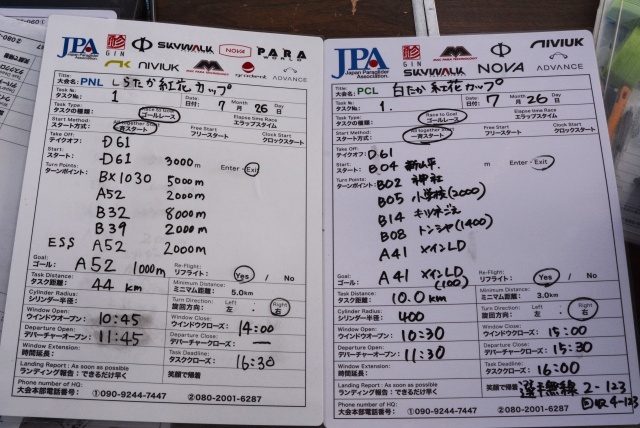 JPA
Japan Paraglider Association.
GIN
SKYWALK
NOVA
PARA WORLD
NIVIUK
gradient
ADVANCE
Title:
大会名: PNL しらたか紅花カップ
Task №:
タスク№: 1
Date:
日付: 7 Month 月 26 Day 日
Task Type:
タスクの種類:
Race to Goal
ゴールレース
Elapse time Race
エラップスタイム
Start Method:
スタート方式:
All together Start
一斉スタート
Free Start
フリースタート
Clock Start
クロックスタート
Take Off:
テイクオフ: D61
Start:
スタート: D61 3000m Enter・Exit
Turn Points:
ターンポイント: BX1030 5000m
A52 2000m
B32 8000m
B39 2000m
ESS A52 2000m
Goal:
ゴール: A52 1000m
Re-Flight:
リフライト: Yes / No
Task Distance:
タスク距離: 44 km
Minimum Distance:
ミニマム距離: 5.0km
Cylinder Radius:
シリンダー半径:
Turn Direction:
旋回方向:
Left
左
Right
右
Window Open:
ウインドウオープン: 10:45
Window Close:
ウインドウクローズ: 14:00
Departure Open:
デパーチャーオープン: 11:45
Departure Close:
デパーチャークローズ: ー
Window Extension:
時間延長:
Task Deadline:
タスククローズ: 16:30
Landing Report : As soon as possible
ランディング報告 : できるだけ早く
笑顔で帰着
Phone number of HQ:
大会本部電話番号: ①090-9244-7447 ②080-2001-6287
JPA
Japan Paraglider Association.
GIN
SKYWALK
PARA WORLD
NOVA
NIVIUK
ADVANCE
Title:
大会名: PCL 白たか紅花カップ
Task №:
タスク№: 1.
Date:
日付: 7 Month 月 26 Day 日
Task Type:
タスクの種類:
Race to Goal
ゴールレース
Elapse time Race
エラップスタイム
Start Method:
スタート方式:
All together Start
一斉スタート
Free Start
フリースタート
Clock Start
クロックスタート
Take Off:
テイクオフ: D61
Start:
スタート: B04 m Enter・Exit
Turn Points:
ターンポイント: B02 神社
B05 小学校(2000)
B14 キツネごえ
B08 トンミヤ(1400)
A41 メインLD
Goal:
ゴール: A41 メインLD (100)
Re-Flight:
リフライト: Yes / No
Task Distance:
タスク距離: 10.0 km
Minimum Distance:
ミニマム距離: 3.0km
Cylinder Radius:
シリンダー半径: 400
Turn Direction:
旋回方向:
Left
左
Right
右
Window Open:
ウインドウオープン: 10:30
Window Close:
ウインドウクローズ: 15:00
Departure Open:
デパーチャーオープン: 11:30
Departure Close:
デパーチャークローズ: 15:30
Window Extension:
時間延長:
Task Deadline:
タスククローズ: 16:00
Landing Report : As soon as possible
ランディング報告 : できるだけ早く
笑顔で帰着 選手無線 2-123
Phone number of HQ:
大会本部電話番号: ①090-9244-7447 ②080-2001-6287
4-123